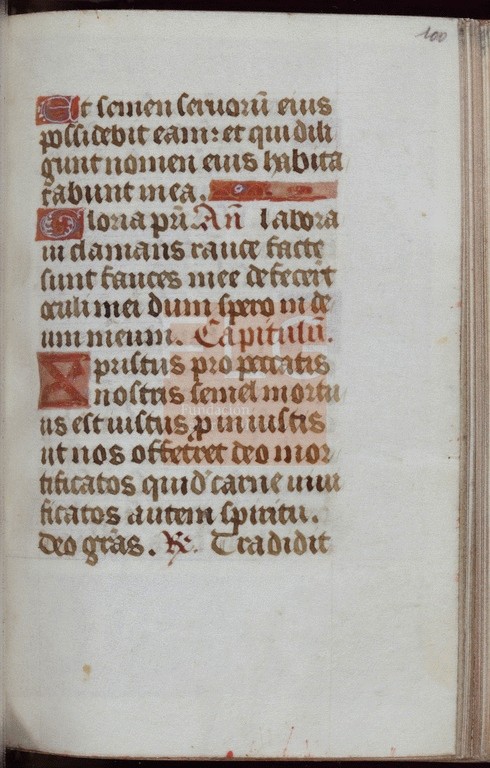 100
Et semen seruorū eius
possidebit eam: et qui dili
gunt nomen eius habita
tabunt in ea.
Gloria pr̄i. An̄ labora
ui clamans rauce facte
sunt fauces mee defecerūt
oculi mei dum spero in de
um meum. Capitulū.
Xpristus pro peccatis
nostris semel mortu
us est iustus p iniustis
ut nos offerret deo mor
tificatos quid carne uiui
ficatos autem spiritu.
deo gr̄as. R. Tradidit
Fundación